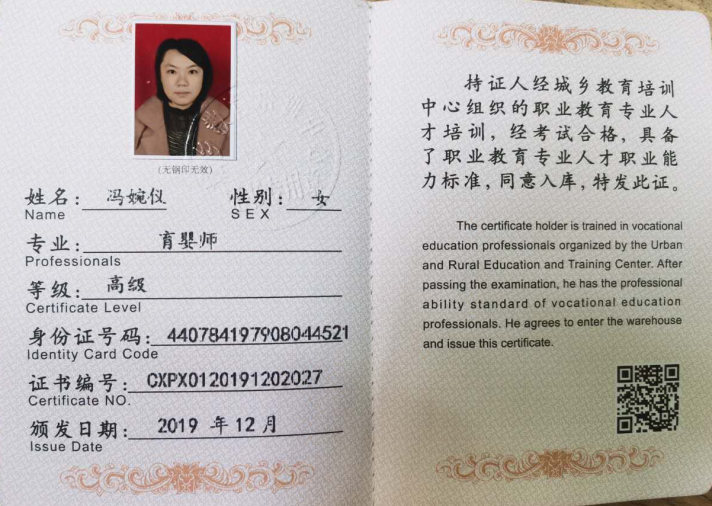 (无钢印无效)
姓名： 冯婉仪 性别： 女
Name SEX
专业： 育婴师
Professionals
等级： 高级
Certificate Level
身份证号码： 440784197908044521
Identity Card Code
证书编号： CXPX0120191202027
Certificate NO.
颁发日期： 2019 年 12 月
Issue Date
持证人经城乡教育培训
中心组织的职业教育专业人
才培训，经考试合格，具备
了职业教育专业人才职业能
力标准，同意入库，特发此证。
The certificate holder is trained in vocational
education professionals organized by the Urban
and Rural Education and Training Center. After
passing the examination, he has the professional
ability standard of vocational education
professionals. He agrees to enter the warehouse
and issue this certificate.